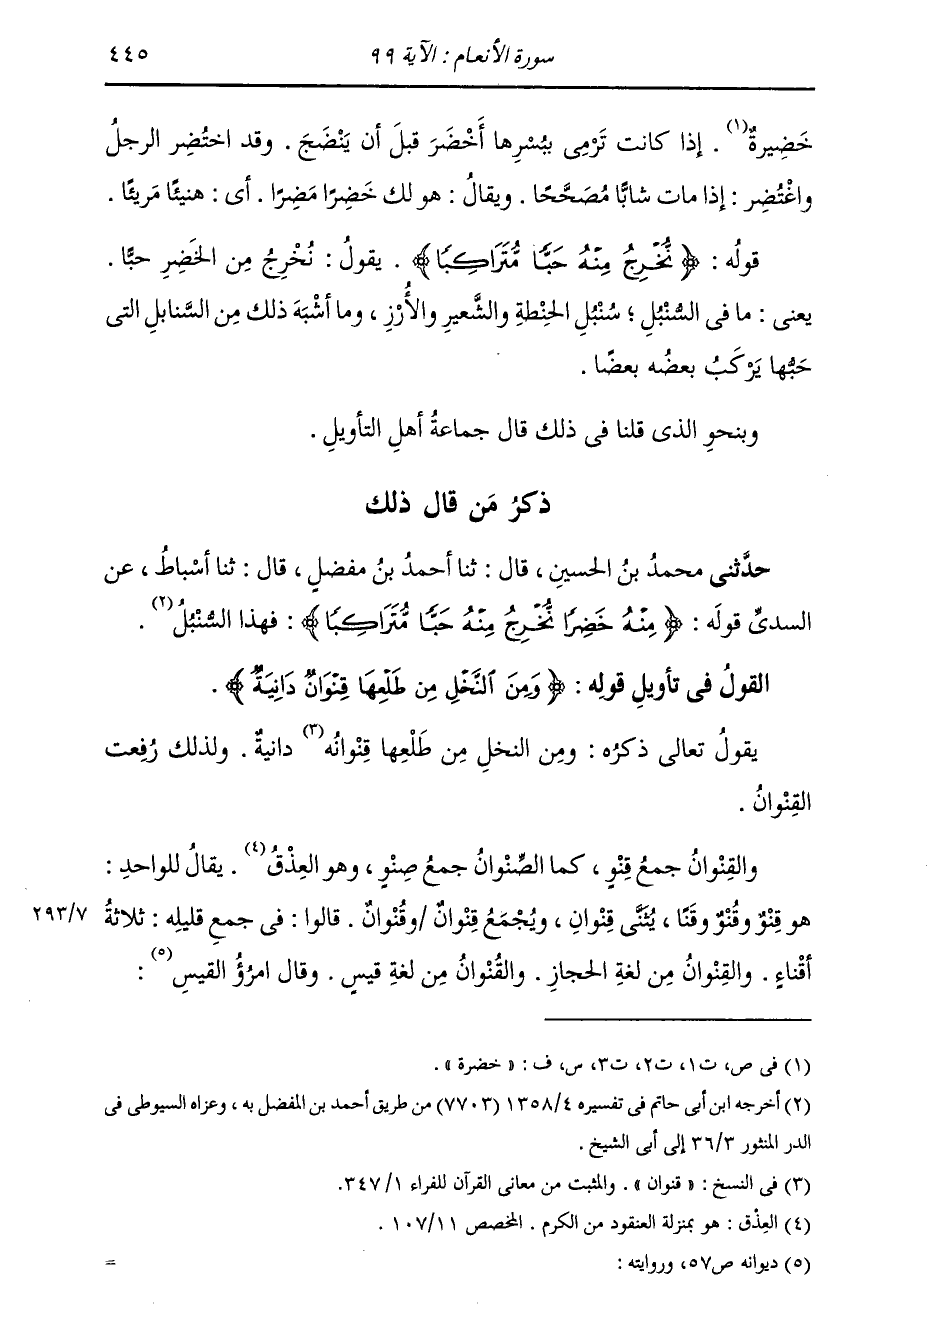 سورة الأنعام : الآية ٩٩ ٤٤٥
خَضِيرةٌ(١) . إذا كانت تَرْمِى ببُسْرِها أَخْضَرَ قبلَ أن يَنْضَجَ . وقد اختُضِر الرجلُ
واغْتُضِر : إذا مات شابًّا مُصَحَّحًا . ويقالُ : هو لك خَضِرًا مَضِرًا . أى : هنيئًا مَريئًا .
قولُه : ﴿ نُّخْرِجُ مِنْهُ حَبًّا مُّتَرَاكِبًا ﴾ . يقولُ : نُخْرِجُ مِن الخَضِرِ حبًّا .
يعنى : ما فى السُّنْبُلِ ؛ سُنْبُلِ الحِنْطةِ والشَّعيرِ والأُرْزِ ، وما أشْبَهَ ذلك مِن السَّنابلِ التى
حَبُّها يَرْكَبُ بعضُه بعضًا .
وبنحوِ الذى قلنا فى ذلك قال جماعةُ أهلِ التأويلِ .
ذكرُ مَن قال ذلك
حدَّثنى محمدُ بنُ الحسينِ ، قال : ثنا أحمدُ بنُ مفضلٍ ، قال : ثنا أسْباطُ ، عن
السدىِّ قولَه : ﴿ مِنْهُ خَضِرًا نُّخْرِجُ مِنْهُ حَبًّا مُّتَرَاكِبًا ﴾ : فهذا السُّنْبُلُ(٢) .
القولُ فى تأويلِ قولِه : ﴿ وَمِنَ ٱلنَّخْلِ مِن طَلْعِهَا قِنْوَانٌ دَانِيَةٌ ﴾ .
يقولُ تعالى ذكرُه : ومِن النخلِ مِن طَلْعِها قِنْوانُه(٣) دانيةٌ . ولذلك رُفِعت
القِنْوانُ .
والقِنْوانُ جمعُ قِنْوٍ ، كما الصِّنْوانُ جمعُ صِنْوٍ ، وهو العِذْقُ(٤) . يقالُ للواحدِ :
هو قِنْوٌ وقُنْوٌ وقَنًا ، يُثَنَّى قِنْوانِ ، ويُجْمَعُ قِنْوانٌ /وقُنْوانٌ . قالوا : فى جمعِ قليلِه : ثلاثةُ ٢٩٣/٧
أقْناءٍ . والقِنْوانُ مِن لغةِ الحجازِ . والقُنْوانُ مِن لغةِ قيسٍ . وقال امرُؤُ القيسِ(٥) :
(١) فى ص، ت١، ت٢، ت٣، س، ف : « خضرة » .
(٢) أخرجه ابن أبى حاتم فى تفسيره ١٣٥٨/٤ (٧٧٠٣) من طريق أحمد بن المفضل به ، وعزاه السيوطى فى
الدر المنثور ٣٦/٣ إلى أبى الشيخ .
(٣) فى النسخ : « قنوان » . والمثبت من معانى القرآن للفراء ٣٤٧/١.
(٤) العِذْق : هو بمنزلة العنقود من الكرم . المخصص ١٠٧/١١ .
(٥) ديوانه ص٥٧، وروايته : =